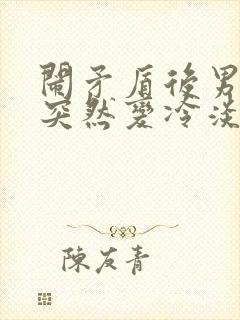 鬧矛盾後男
突然變冷淡
陳友青